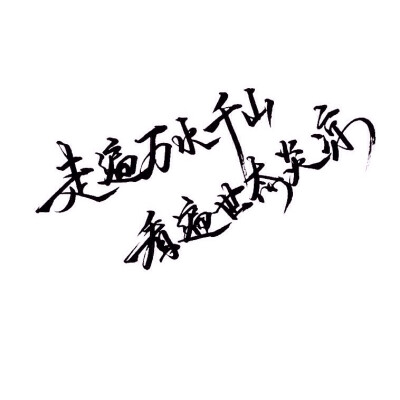 走遍万水千山
看遍世态炎凉